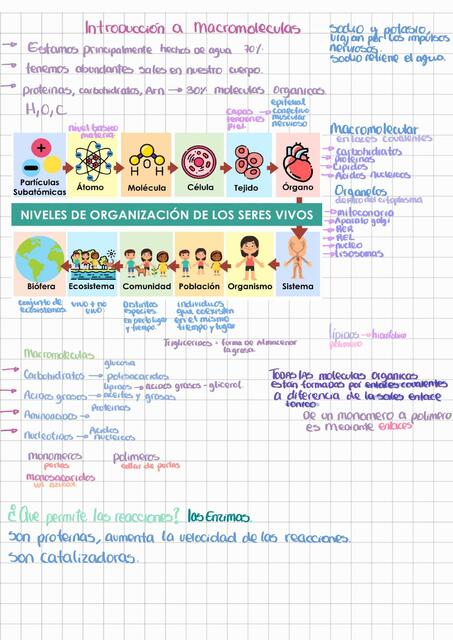 Introducción a Macromoleculas
→ Estamos principalmente hechos de agua 70%
→ tenemos abundantes sales en nuestro cuerpo.
→ proteinas, carbohidratos, Arn → 30% moleculas Organicas
H, O, C
sodio y potasio,
viajan por los impulsos
nerviosos.
sodio retiene el agua.
nivel basico
materia
capas
tendones
piel
→ epitelial
conectivo
muscular
nervioso
Partículas
Subatómicas
Átomo
H O H
Molécula
Célula
Tejido
Órgano
NIVELES DE ORGANIZACIÓN DE LOS SERES VIVOS
Biófera
Ecosistema
Comunidad
Población
Organismo
Sistema
conjunto de
ecosistemas
vivo + no
vivo
Distintas
especies
en un lugar
y tiempo
individuos
que coexisten
en el mismo
tiempo y lugar
Macromolecular
enlaces covalentes
→ carbohidratos
→ proteinas
→ Lipidos
→ Acidos nucleicos
Organelos
dentro del citoplasma
→ mitocondria
→ Aparato golgi
→ RER
→ REL
→ nucleo
→ lisosomas
Trigliceridos - forma de Almacenar
la grasa
lipidos → hidrofobico
polimero
Macromoleculas
glucosa
→ Carbohidratos → polisacaridos
lipidos → acidos grasos - glicerol
→ Acidos grasos → aceites y grasas
→ Aminoacidos → Proteinas
→ Nucleotidos → Acidos
nucleicos
Todas las moleculas organicas
estan formadas por enlaces covalentes
a diferencia de las sales enlace
ionico.
De un monomero a polimero
es mediante enlaces
monomeros
perlas
polimeros
collar de perlas
monosacaridos
un azucar
¿Que permite las reacciones? las Enzimas.
son proteinas, aumenta la velocidad de las reacciones.
son catalizadoras.